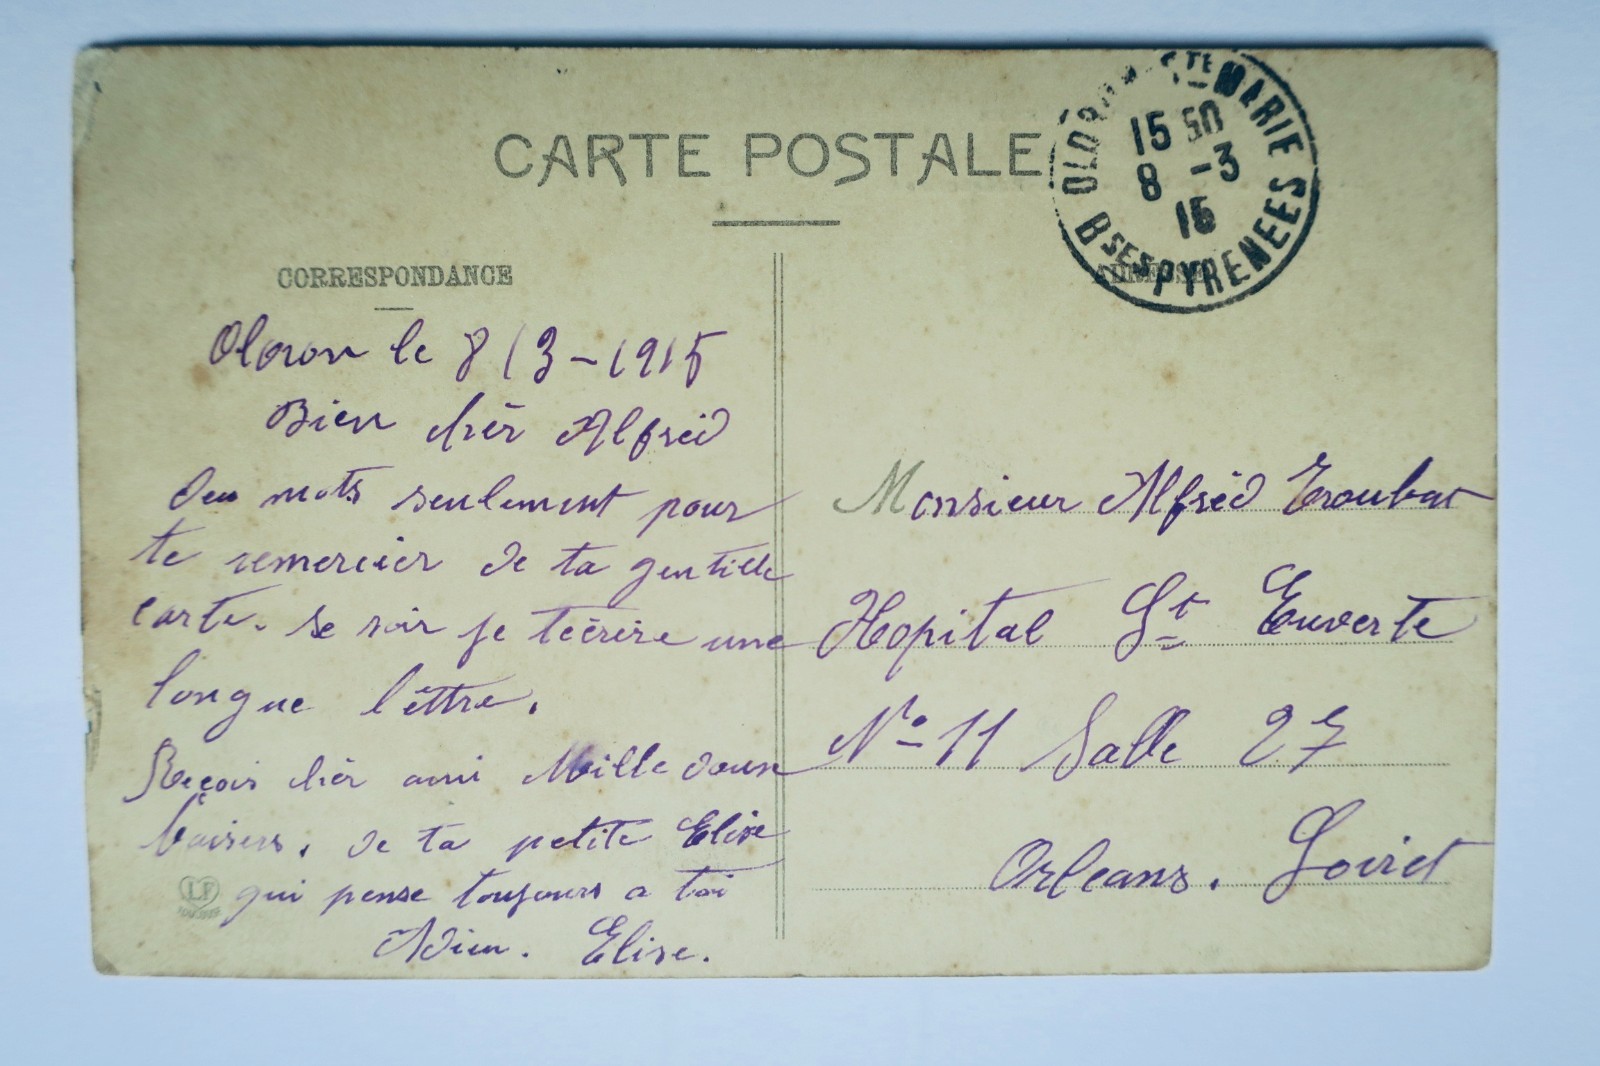 CARTE POSTALE
OLORON-STE-MARIE
15 50
8 -3
15
BSES PYRENEES
CORRESPONDANCE
ADRESSE
Oloron le 8/3-1915
Bien chèr Alfred
Deu mots seulement pour
te remercier de ta gentille
carte. Se soir je técrire une
longue lêttre.
Reçois chèr ami Mille doux
baisers. de ta petite Elise
qui pense toujours a toi
Adieu. Elise.
LF
Monsieur Alfréd Troubat
Hopital St Euverte
No 11 Salle 27
Orleans. Loiret